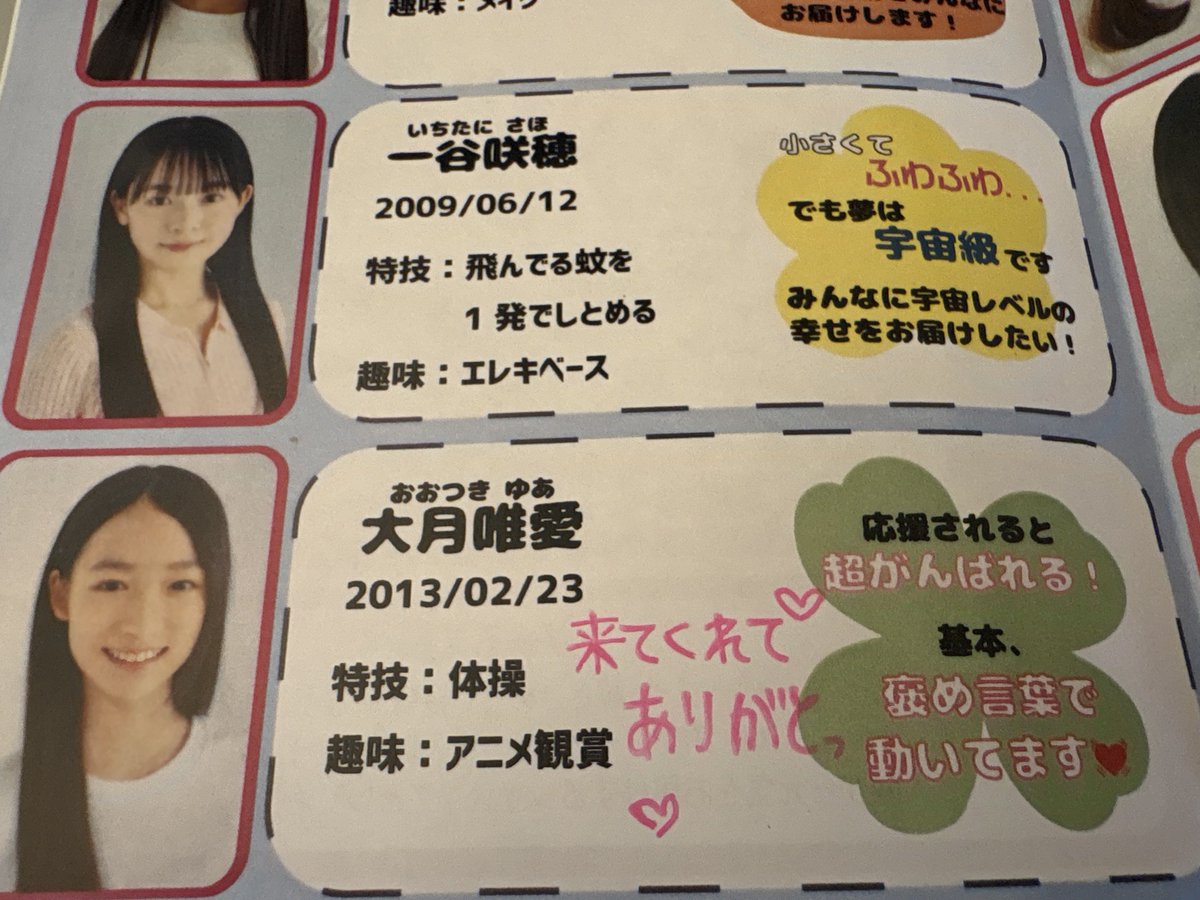 趣味：メイク
みんなに
お届けします！
いちたに さほ
一谷咲穂
2009/06/12
特技：飛んでる蚊を
1 発でしとめる
趣味：エレキベース
小さくて
ふわふわ...
でも夢は
宇宙級です
みんなに宇宙レベルの
幸せをお届けしたい！
おおつき ゆあ
大月唯愛
2013/02/23
特技：体操
趣味：アニメ観賞
来てくれて♡
ありがとっ
♡
応援されると
超がんばれる！
基本、
褒め言葉で
動いてます♥